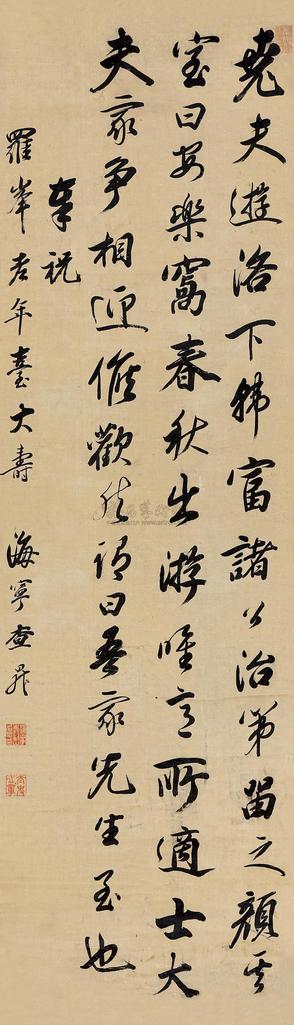 堯夫遊洛下韩富諸公治第留之顏其
室曰安樂窩春秋出游唯意所適士大
夫家争相迎僮歡然謂曰吾家先生至也
奉祝
羅峯老年臺大壽
海寧查昇